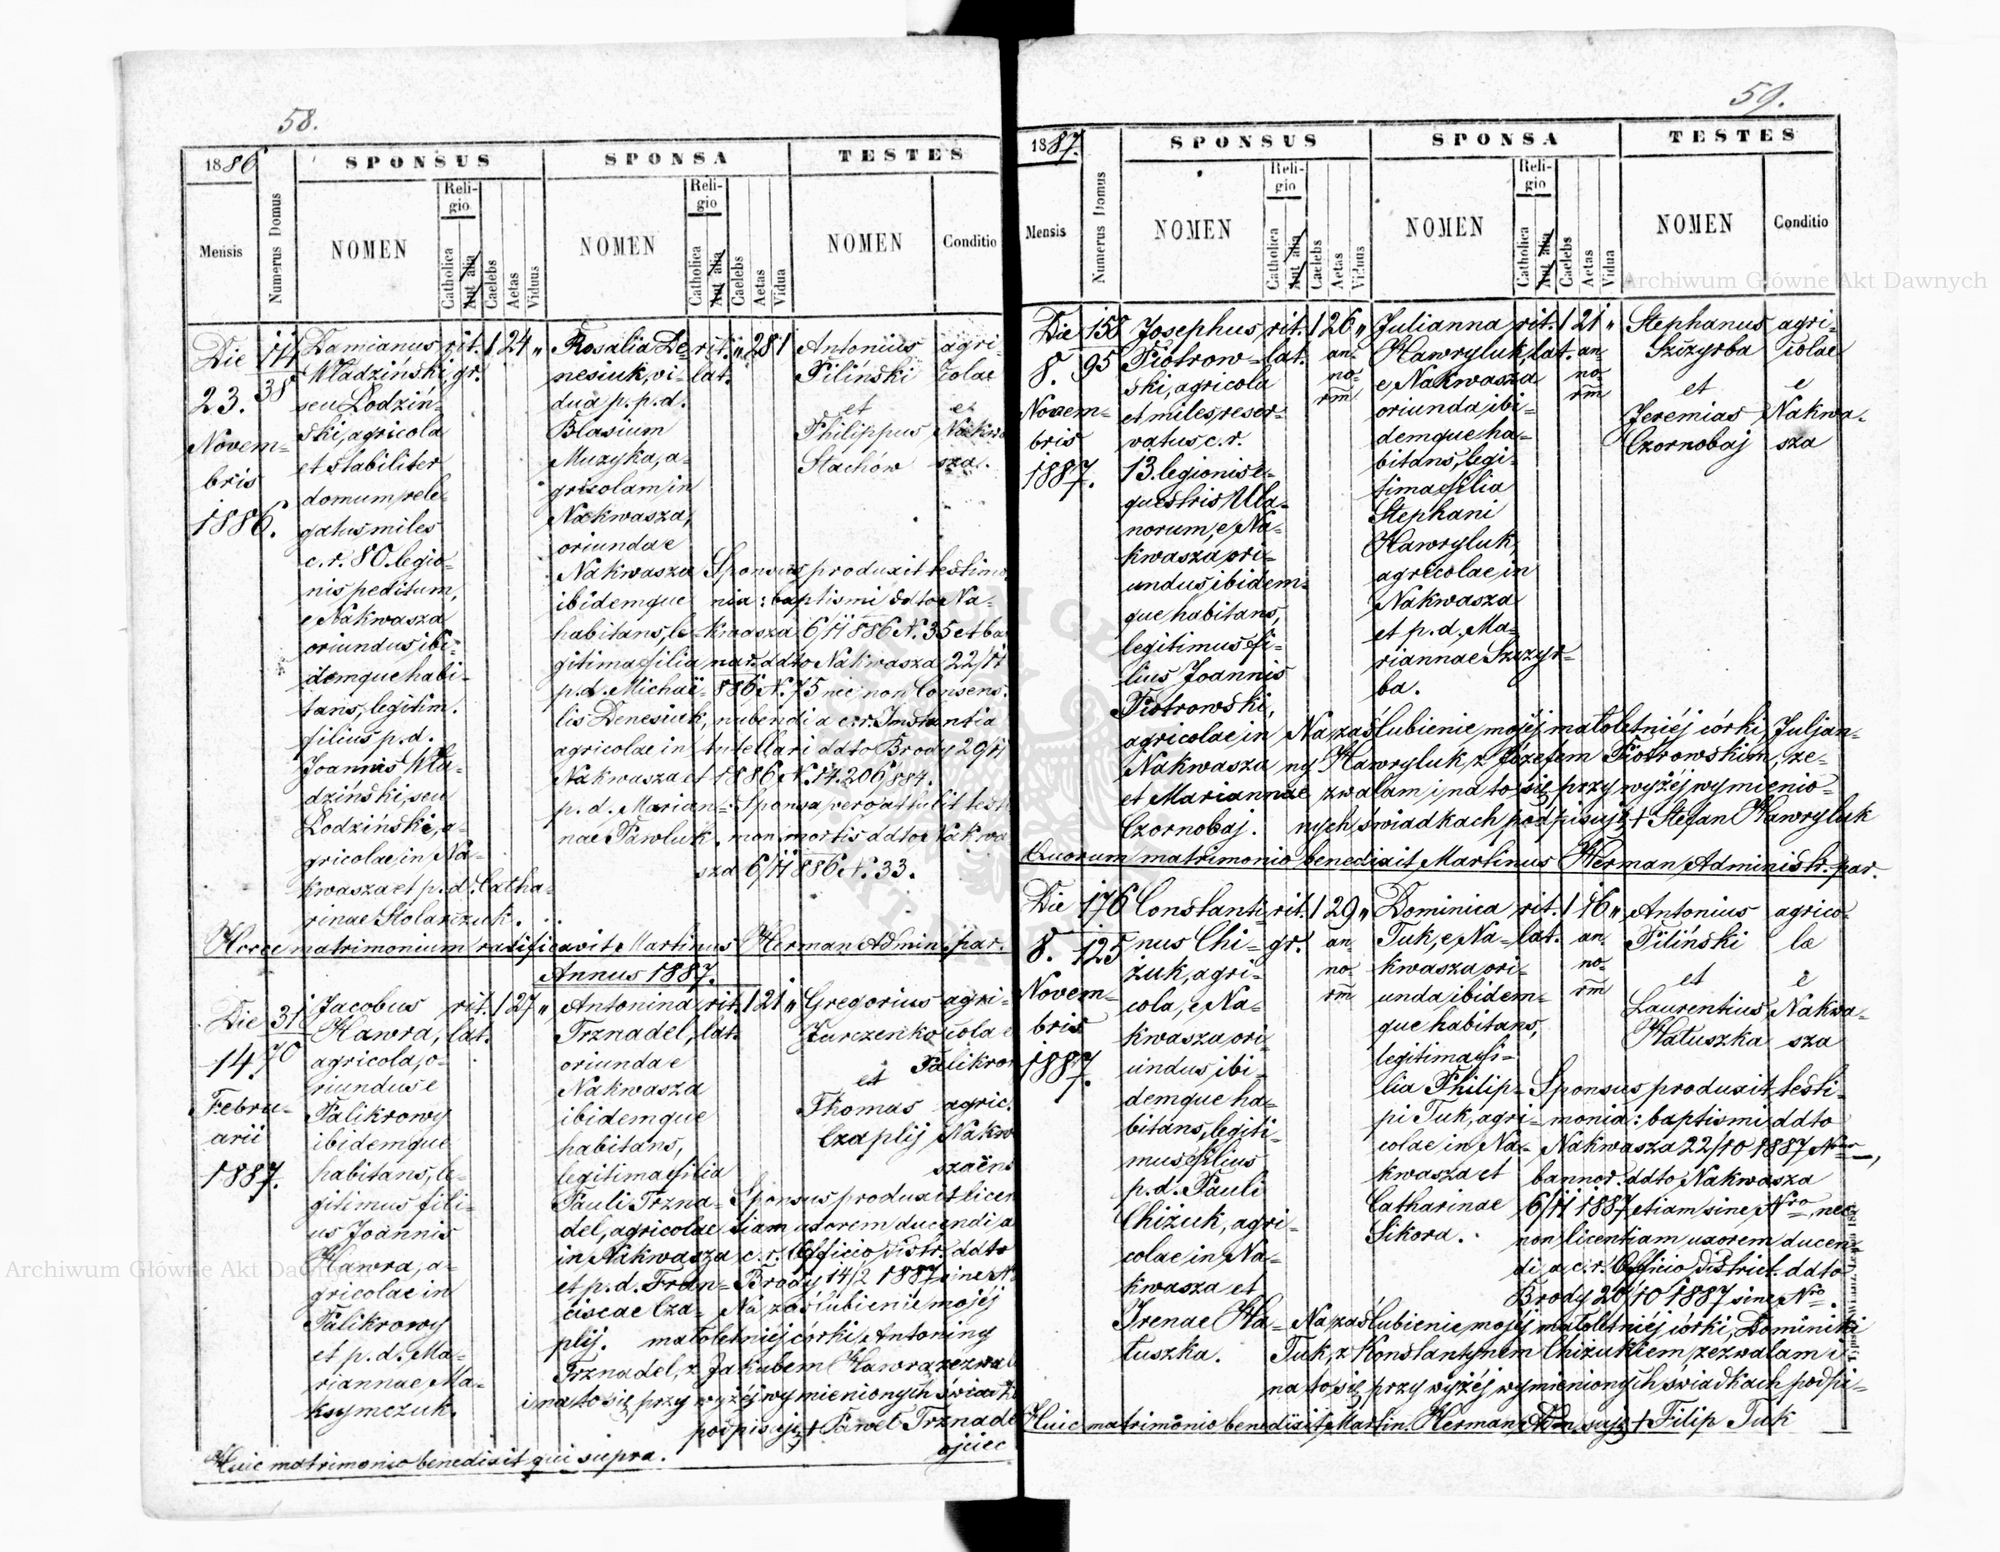 58.
1886
SPONSUS
SPONSA
TESTES
Mensis
Numerus Domus
NOMEN
Religio
Catholica
Aut alia
Caelebs
Aetas
Viduus
NOMEN
Religio
Catholica
Aut alia
Caelebs
Aetas
Vidua
NOMEN
Conditio
Die
23.
Novem-
bris
1886.
114
38
Damianus
Władziński,
seu Lodziń-
ski, agricola
et stabiliter
domum rele-
gatus miles
c. r. 80. legio-
nis peditum,
e Nakwasza
oriundus ibi-
demque habi-
tans, legitim.
filius p. d.
Joannis Wła-
dziński, seu
Lodziński, a-
gricolae in Na-
kwasza et p. d. Catha-
rinae Stolarczuk.
rit. gr. 1 24 "
Rosalia De-
nesiuk, vi-
dua p. p. d.
Blasium
Muzyka, a-
gricolam in
Nakwasza,
oriunda e
Nakwasza
ibidemque
habitans, le-
gitima filia
p. d. Michaë-
lis Denesiuk,
agricolae in
Nakwasza et
p. d. Marian-
nae Pawluk.
rit. lat. " 28 1
Antonius
Piliński
et
Philippus
Stachów
agri-
colae
e
Nakwa
sza.
Sponsus produxit testimo
nia: baptismi ddto Na-
kwasza 6/11 886 N. 35 et ba
nar. ddto Nakwasza 22/11
886 N. 75 nec non Consens.
nubendi a c. r. Instantia
tutellari ddto Brody 29/11
1886 N. 17.206/884.
Sponsa vero attulit testi
mon. mortis ddto Nakwa
sza 6/11 886 N. 33.
Hocce matrimonium ratificavit Martinus Herman Admin. par.
Annus 1887.
Die
14.
Febru-
arii
1887.
31
70
Jacobus
Hawra,
agricola, o-
riundus e
Palikrowy
ibidemque
habitans, le-
gitimus fili-
us Joannis
Hawra, a-
gricolae in
Palikrowy
et p. d. Ma-
riannae Ma-
ksymczuk.
rit. lat. 1 27 "
Antonina
Trznadel,
oriunda e
Nakwasza
ibidemque
habitans,
legitima filia
Pauli Trzna-
del, agricolae
in Nakwasza
et p. d. Fran-
ciscae Cza-
plij.
rit. lat. 1 21 "
Gregorius
Jurczenko
et
Thomas
Czaplij
agri-
cola e
Palikrow
agric.
Nakw
szaëns
Sponsus produxit licen
tiam uxorem ducendi a
c. r. Officio distr. ddto
Brody 14/2 1887 sine N
Na zaślubienie mojéj
małoletniéj córki, Antoniny
Trznadel, z Jakubem Hawra zezwal
i na to się przy wyżéj wymienionych świadk
podpisuję † Paweł Trznade
ojciec
Huic matrimonio benedixit qui supra.
59.
1887.
SPONSUS
SPONSA
TESTES
Mensis
Numerus Domus
NOMEN
Religio
Catholica
Aut alia
Caelebs
Aetas
Viduus
NOMEN
Religio
Catholica
Aut alia
Caelebs
Aetas
Vidua
NOMEN
Conditio
Die
8.
Novem-
bris
1887.
158
95
Josephus
Piotrow-
ski, agricola
et miles reser-
vatus c. r.
13. legionis e-
questris Ula-
norum, e Na-
kwasza ori-
undus ibidem-
que habitans,
legitimus fi-
lius Joannis
Piotrowski,
agricolae in
Nakwasza
et Mariannae
Czornobaj.
rit. lat. 1 26 an-no-rm "
Julianna
Hawryluk,
e Nakwasza
oriunda ibi-
demque ha-
bitans, legi-
tima filia
Stephani
Hawryluk,
agricolae in
Nakwasza
et p. d. Ma-
riannae Szczyr-
ba.
rit. lat. 1 21 an-no-rm "
Stephanus
Szczyrba
et
Jeremias
Czornobaj
agri-
colae
e
Nakwa-
sza
Na zaślubienie mojéj małoletniéj córki, Juljan-
ny Hawryluk z Józefem Piotrowskim, ze-
zwalam i na to się przy wyżéj wymienio-
nych świadkach podpisuję † Stefan Hawryluk
Quorum matrimonio benedixit Martinus Herman Administr. par.
Die
8.
Novem-
bris
1887.
176
125
Constanti-
nus Chi-
żuk, agri-
cola, e Na-
kwasza ori-
undus ibi-
demque ha-
bitans, legiti-
mus filius
p. d. Pauli
Chiżuk, agri-
colae in Na-
kwasza et
Irenae Ha-
tuszka.
rit. gr. 1 29 an-no-rm "
Dominica
Tuk, e Na-
kwasza ori-
unda ibidem-
que habitans,
legitima fi-
lia Philip-
pi Tuk, agri-
colae in Na-
kwasza et
Catharinae
Sikora.
rit. lat. 1 16 an-no-rm "
Antonius
Piliński
et
Laurentius
Hatuszka
agrico-
lae
e
Nakwa-
sza
Sponsus produxit testi-
monia: baptismi ddto
Nakwasza 22/10 1887
bannor. ddto Nakwasza
6/11 1887 etiam sine Nro, nec
non licentiam uxorem ducen
di a c. r. Officio District. ddto
Brody 20/10 1887 sine Nro.
Na zaślubienie mojéj małoletniéj córki, Dominiki
Tuk, z Konstantynem Chiżukiem zezwalam i
na to się przy wyżéj wymienionych świadkach podpi-
suję † Filip Tuk
Huic matrimonio benedixit Martin. Herman Adm.
Archiwum Główne Akt Dawnych
Archiwum Główne Akt Dawnych